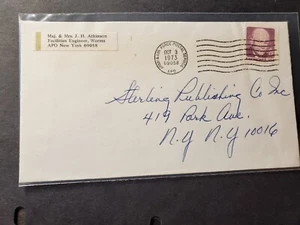 Maj. & Mrs. J. H. Atkinson
Facilities Engineer, Worms
APO New York 09058
OCT 3
1973
09058
Sterling Publishing Co Inc
419 Park Ave.
N.Y. N.Y 10016